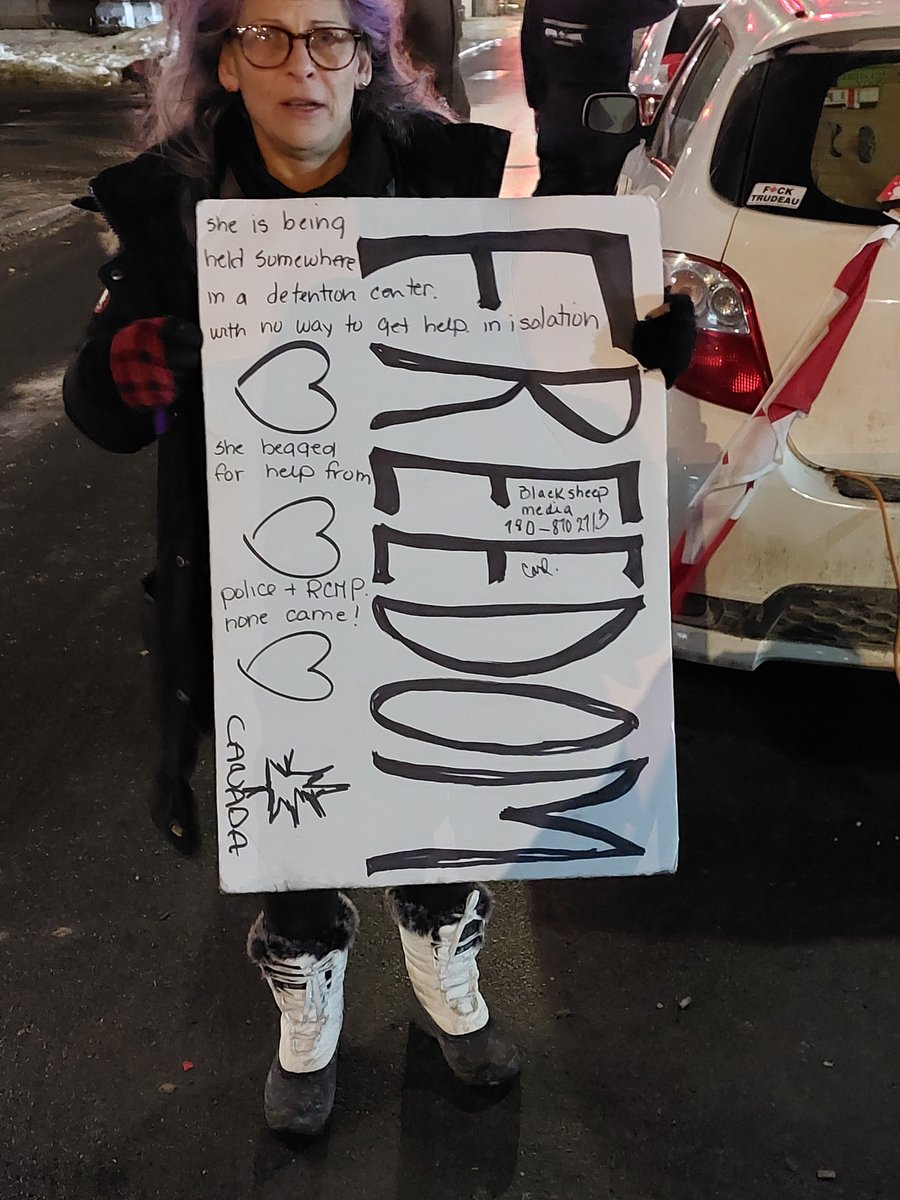 she is being
held somewhere
in a detention center.
with no way to get help in isolation
she begged
for help from
police + RCMP.
none came!
CANADA
FREEDOM
Black sheep
media
F*CK
TRUDEAU